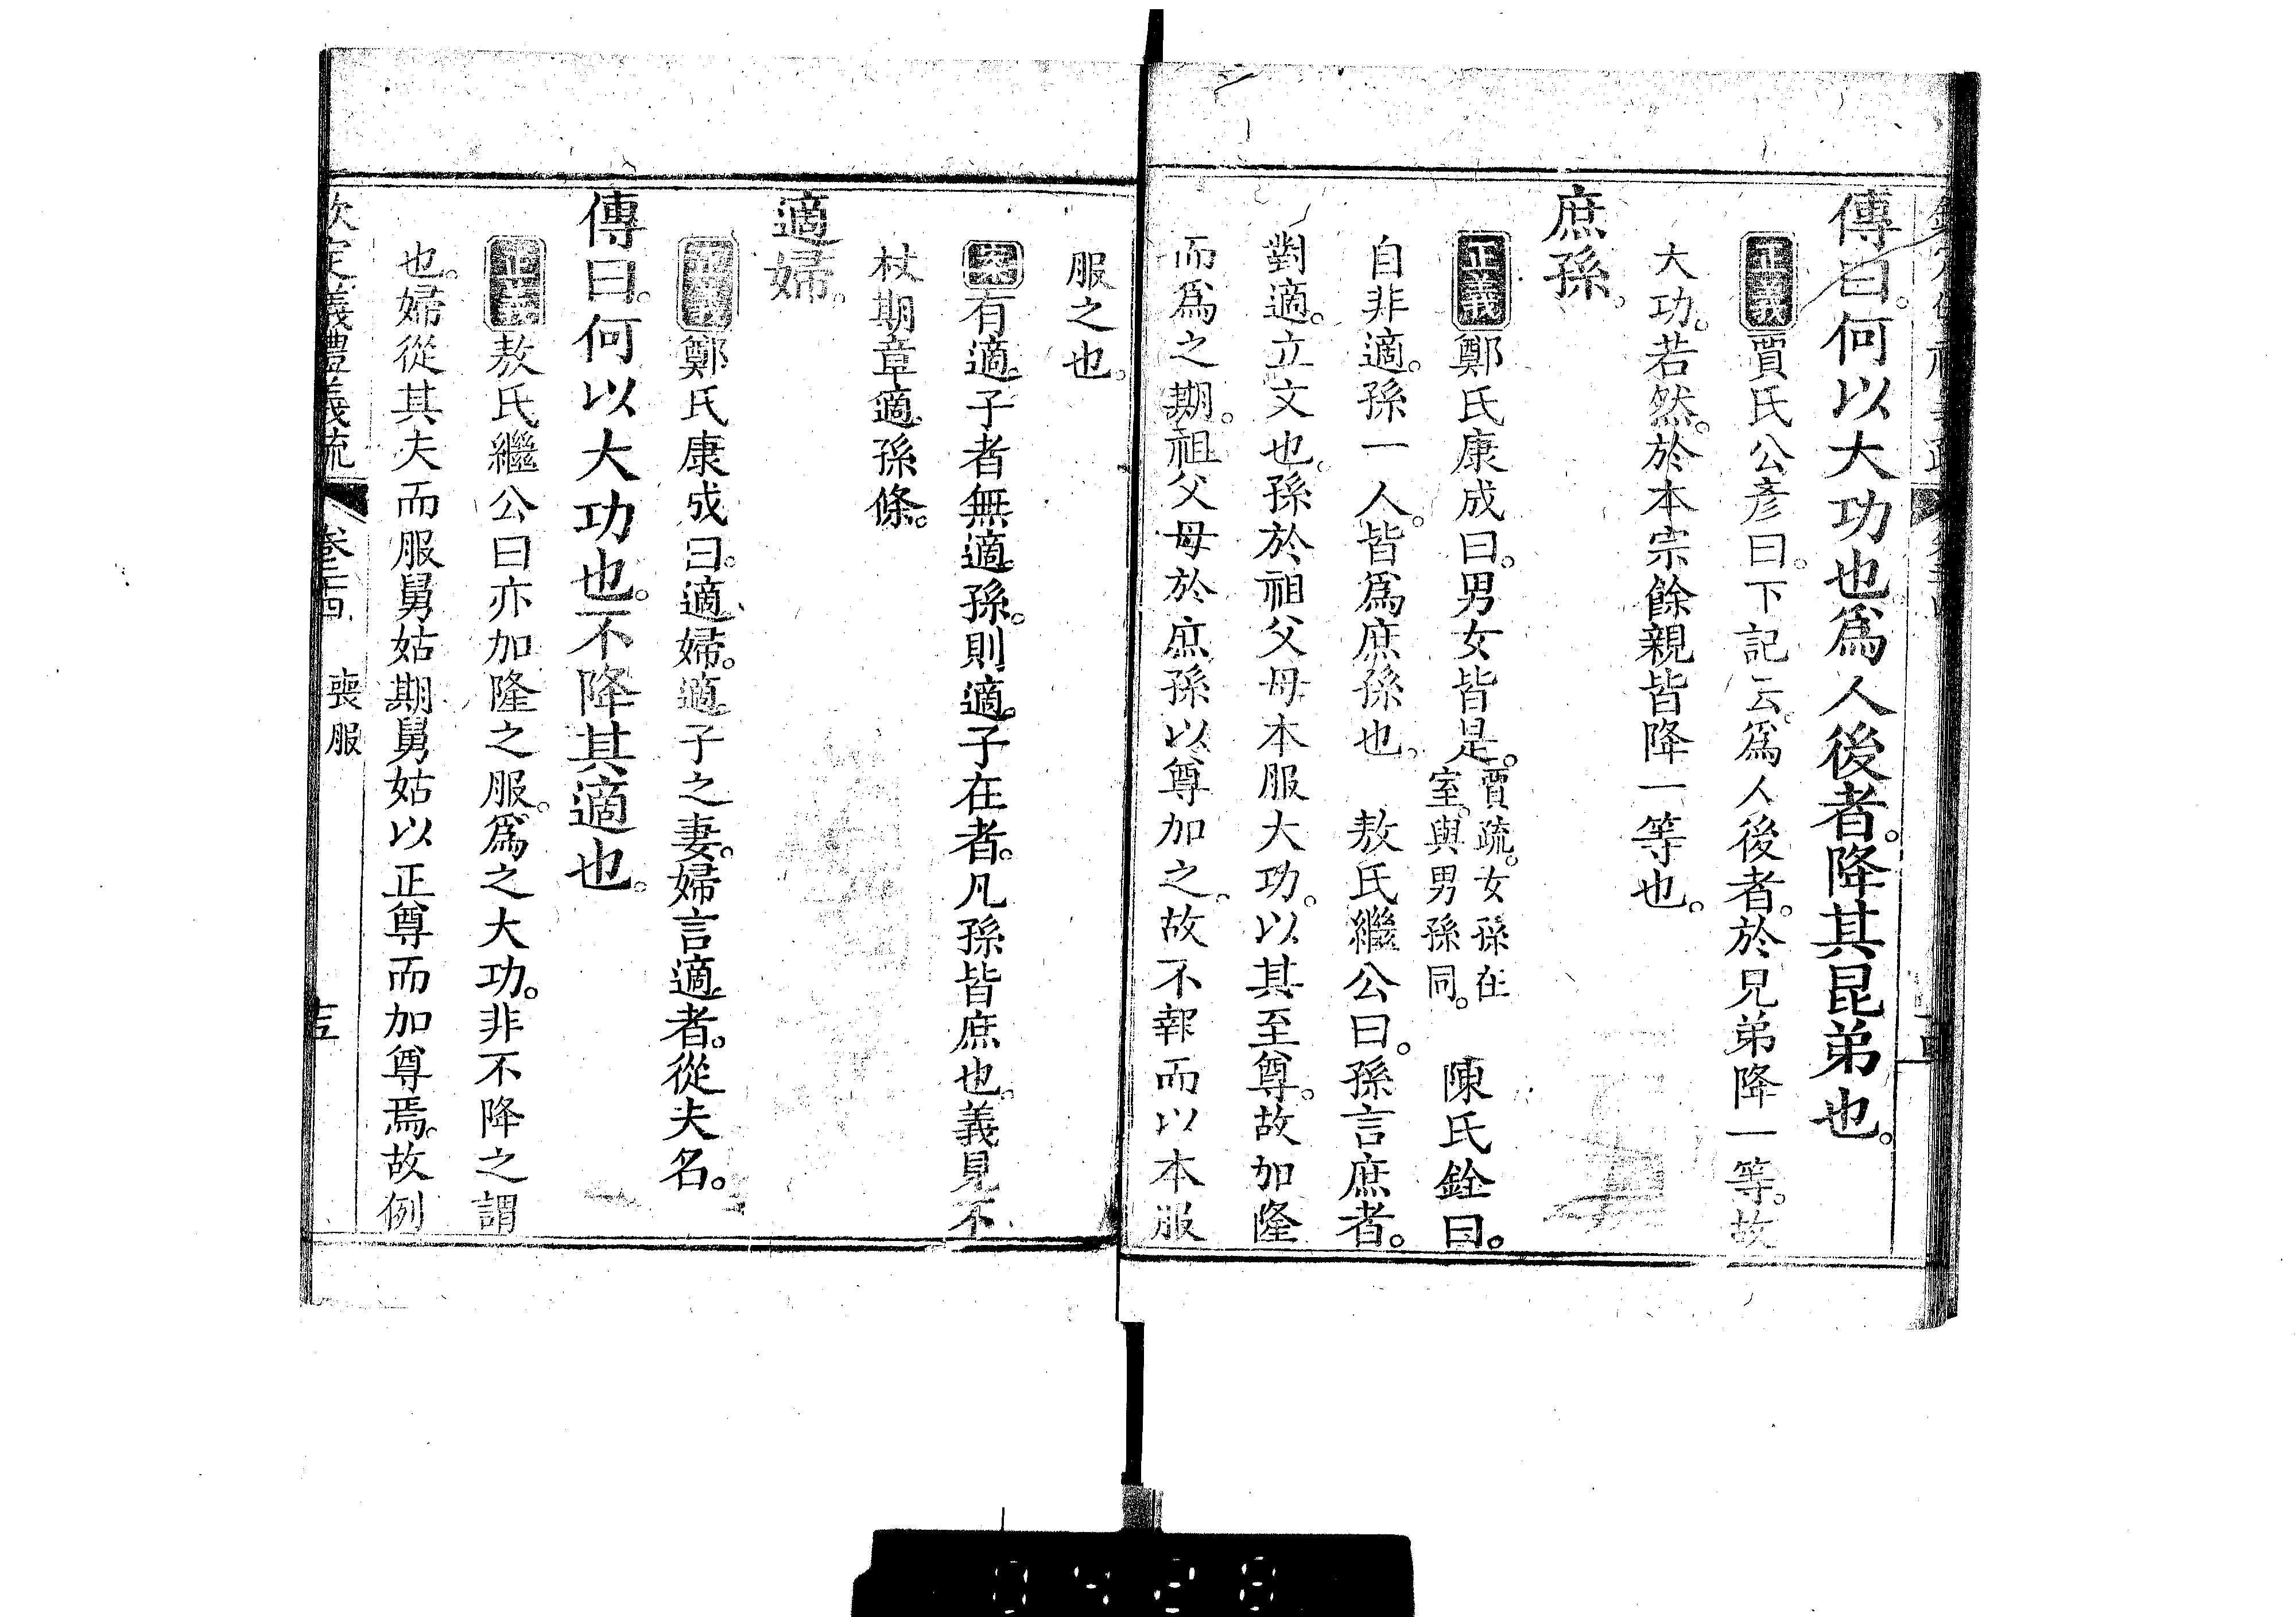 傳曰。何以大功也。爲人後者。降其昆弟也。
正義賈氏公彥曰。下記云。爲人後者。於兄弟降一等。故
大功。若然。於本宗餘親皆降一等也。
庶孫。
正義鄭氏康成曰。男女皆是。賈疏。女孫在室。與男孫同。 陳氏銓曰。
自非適。孫一人。皆爲庶孫也。 敖氏繼公曰。孫言庶者。
對適。立文也。孫於祖父母本服大功。以其至尊。故加隆
而爲之期。祖父母於庶孫以尊加之。故不報而以本服
服之也。
案有適子者無適孫。則適子在者。凡孫皆庶也。義見不
杖期章適孫條。
適婦。
正義鄭氏康成曰。適婦。適子之妻。婦言適者。從夫名。
傳曰。何以大功也。不降其適也。
正義敖氏繼公曰亦加隆之服。爲之大功。非不降之謂
也。婦從其夫而服舅姑期舅姑以正尊而加尊焉。故例
欽定義禮義疏 卷二十四 喪服